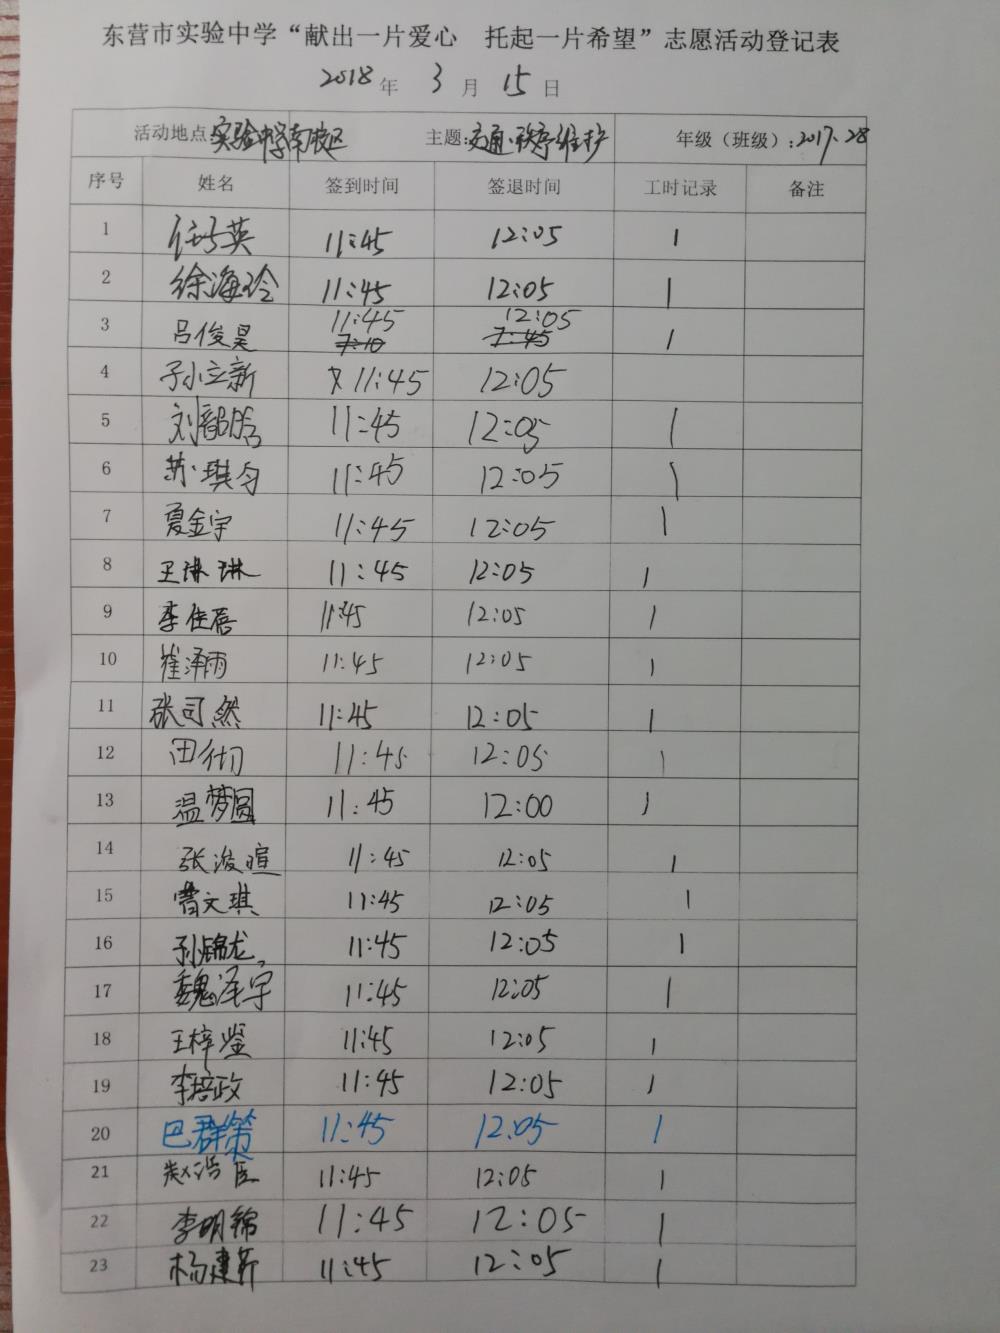 东营市实验中学“献出一片爱心 托起一片希望”志愿活动登记表
2018 年 3 月 15 日
活动地点:实验中学南校区 主题:交通秩序维护 年级（班级）:2017.28
序号 姓名 签到时间 签退时间 工时记录 备注
1 英 11:45 12:05 1
2 徐海玲 11:45 12:05 1
3 吕俊昊 11:45 7:10 12:05 7:45 1
4 孙立新 11:45 12:05
5 刘 11:45 12:05 1
6 苏琪匀 11:45 12:05 1
7 夏金宇 11:45 12:05 1
8 王琳琳 11:45 12:05 1
9 李佳蓓 11:45 12:05 1
10 崔泽雨 11:45 12:05 1
11 张司然 11:45 12:05 1
12 田彻 11:45 12:05 1
13 温梦圆 11:45 12:00 1
14 张浚暄 11:45 12:05 1
15 曹文琪 11:45 12:05 1
16 孙锦龙 11:45 12:05 1
17 魏泽宇 11:45 12:05 1
18 王梓鉴 11:45 12:05 1
19 李培政 11:45 12:05 1
20 巴群策 11:45 12:05 1
21 赵浩臣 11:45 12:05 1
22 李明锦 11:45 12:05 1
23 杨建 11:45 12:05 1